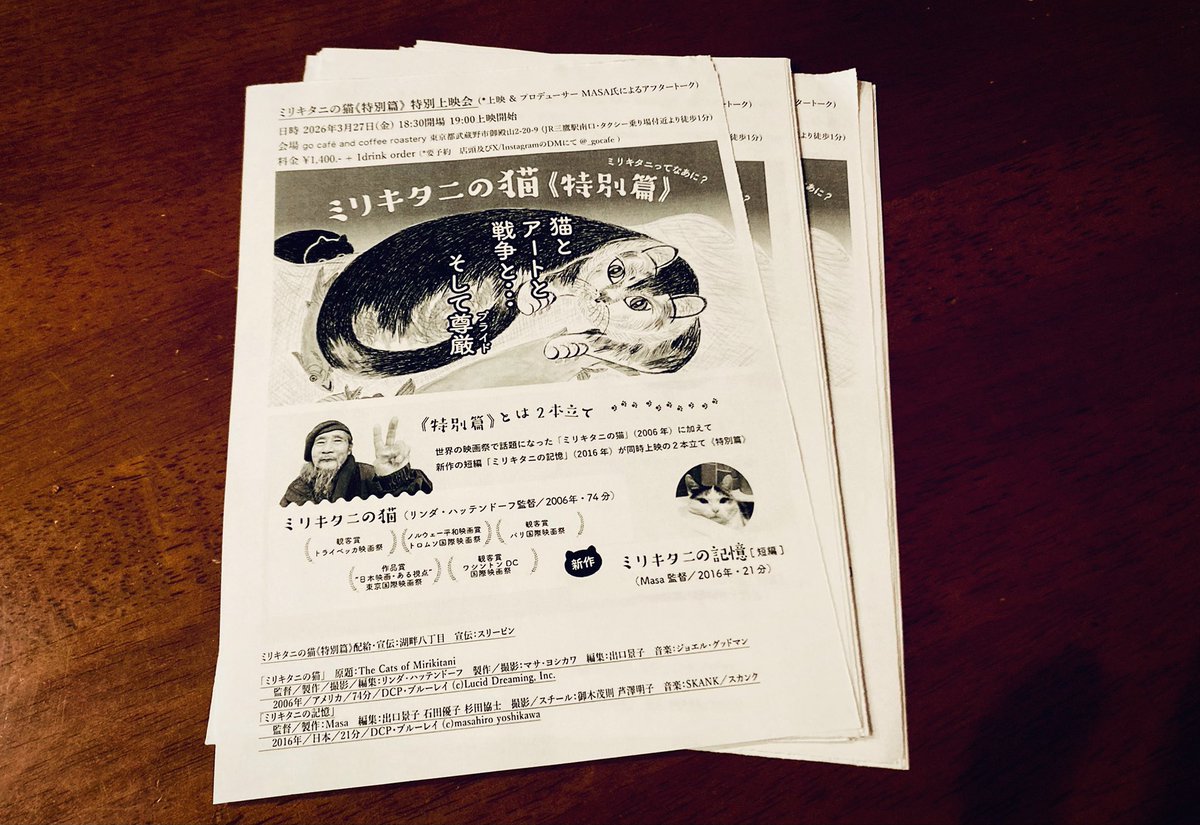 ミリキタニの猫《特別篇》 特別上映会 (*上映 & プロデューサー MASA氏によるアフタートーク)
日時 2026年3月27日(金) 18:30開場 19:00上映開始
会場 go café and coffee roastery 東京都武蔵野市御殿山2-20-9 (JR三鷹駅南口・タクシー乗り場付近より徒歩1分)
料金 ¥1,400.- + 1drink order (*要予約 店頭及びX/InstagramのDMにて @_gocafe )
ミリキタニってなあに?
ミリキタニの猫《特別篇》
猫と
アートと
戦争と…
そして尊厳
プライド
《特別篇》とは2本立て
世界の映画祭で話題になった「ミリキタニの猫」(2006年)に加えて
新作の短編「ミリキタニの記憶」(2016年)が同時上映の2本立て《特別篇》
ミリキタニの猫(リンダ・ハッテンドーフ監督/2006年・74分)
観客賞
トライベッカ映画祭
ノルウェー平和映画賞
トロムソ国際映画祭
観客賞
パリ国際映画祭
作品賞
"日本映画・ある視点"
東京国際映画祭
観客賞
ワシントンDC
国際映画祭
新作
ミリキタニの記憶[短編]
(Masa監督/2016年・21分)
ミリキタニの猫《特別篇》配給・宣伝:湖畔八丁目 宣伝:スリーピン
「ミリキタニの猫」 原題:The Cats of Mirikitani 製作/撮影:マサ・ヨシカワ 編集:出口景子 音楽:ジョエル・グッドマン
監督/製作/撮影/編集:リンダ・ハッテンドーフ
2006年/アメリカ/74分/DCP・ブルーレイ (c)Lucid Dreaming, Inc.
「ミリキタニの記憶」
監督/製作:Masa 編集:出口景子 石田優子 杉田協士 撮影/スチール:御木茂則 芦澤明子 音楽:SKANK/スカンク
2016年/日本/21分/DCP・ブルーレイ (c)masahiro yoshikawa